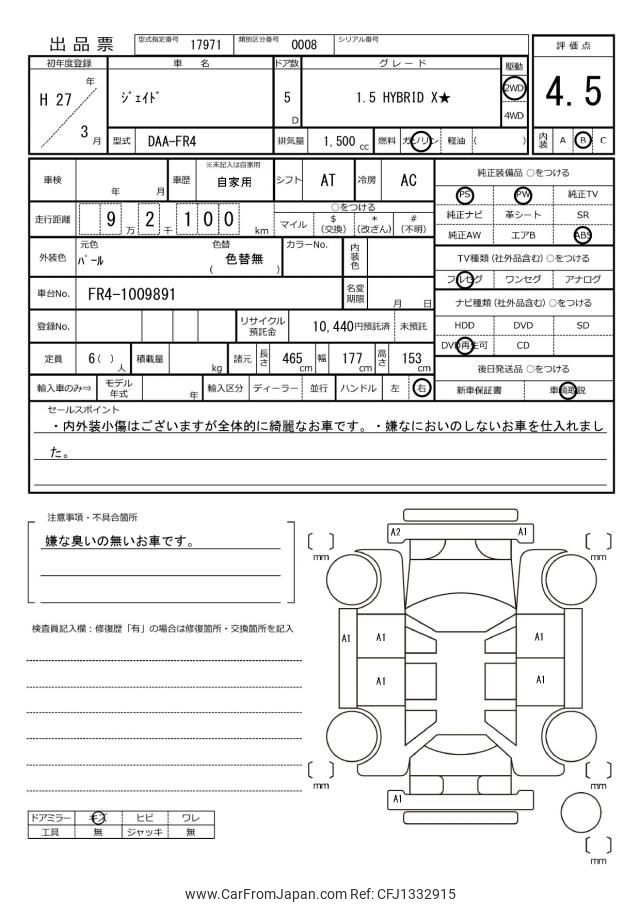 出品票
型式指定番号 17971 類別区分番号 0008 シリアル番号
評価点
4.5
初年度登録 車名 ドア数 グレード 駆動
H 27 年 3 月
ジェイド 5 D 1.5 HYBRID X★ 2WD 4WD
型式 DAA-FR4 排気量 1,500 cc 燃料 ガソリン 軽油 ( )
内装 A B C
車検 年 月 車歴 ※未記入は自家用 自家用 シフト AT 冷房 AC
走行距離 9 2 1 0 0 万 千 km
○をつける
マイル $ (交換) * (改ざん) # (不明)
外装色 元色 パール 色替 ( 色替無 ) カラーNo. 内装色
車台No. FR4-1009891 名変期限 月 日
登録No. リサイクル預託金 10,440円預託済 未預託
定員 6( ) 人 積載量 kg 諸元 長さ 465 cm 幅 177 cm 高さ 153 cm
輸入車のみ⇒ モデル年式 年 輸入区分 ディーラー 並行 ハンドル 左 右
純正装備品 ○をつける
PS PW 純正TV
純正ナビ 革シート SR
純正AW エアB ABS
TV種類 (社外品含む) ○をつける
フルセグ ワンセグ アナログ
ナビ種類 (社外品含む) ○をつける
HDD DVD SD
DVD再生可 CD
後日発送品 ○をつける
新車保証書 車輌取説
セールスポイント
・内外装小傷はございますが全体的に綺麗なお車です。・嫌なにおいのしないお車を仕入れまし
た。
注意事項・不具合箇所
嫌な臭いの無いお車です。
検査員記入欄:修復歴「有」の場合は修復箇所・交換箇所を記入
A2 A1
mm mm
A1 A1 A1
A1 A1
mm mm
A1
mm
ドアミラー キズ ヒビ ワレ
工具 無 ジャッキ 無
www.CarFromJapan.com Ref: CFJ1332915